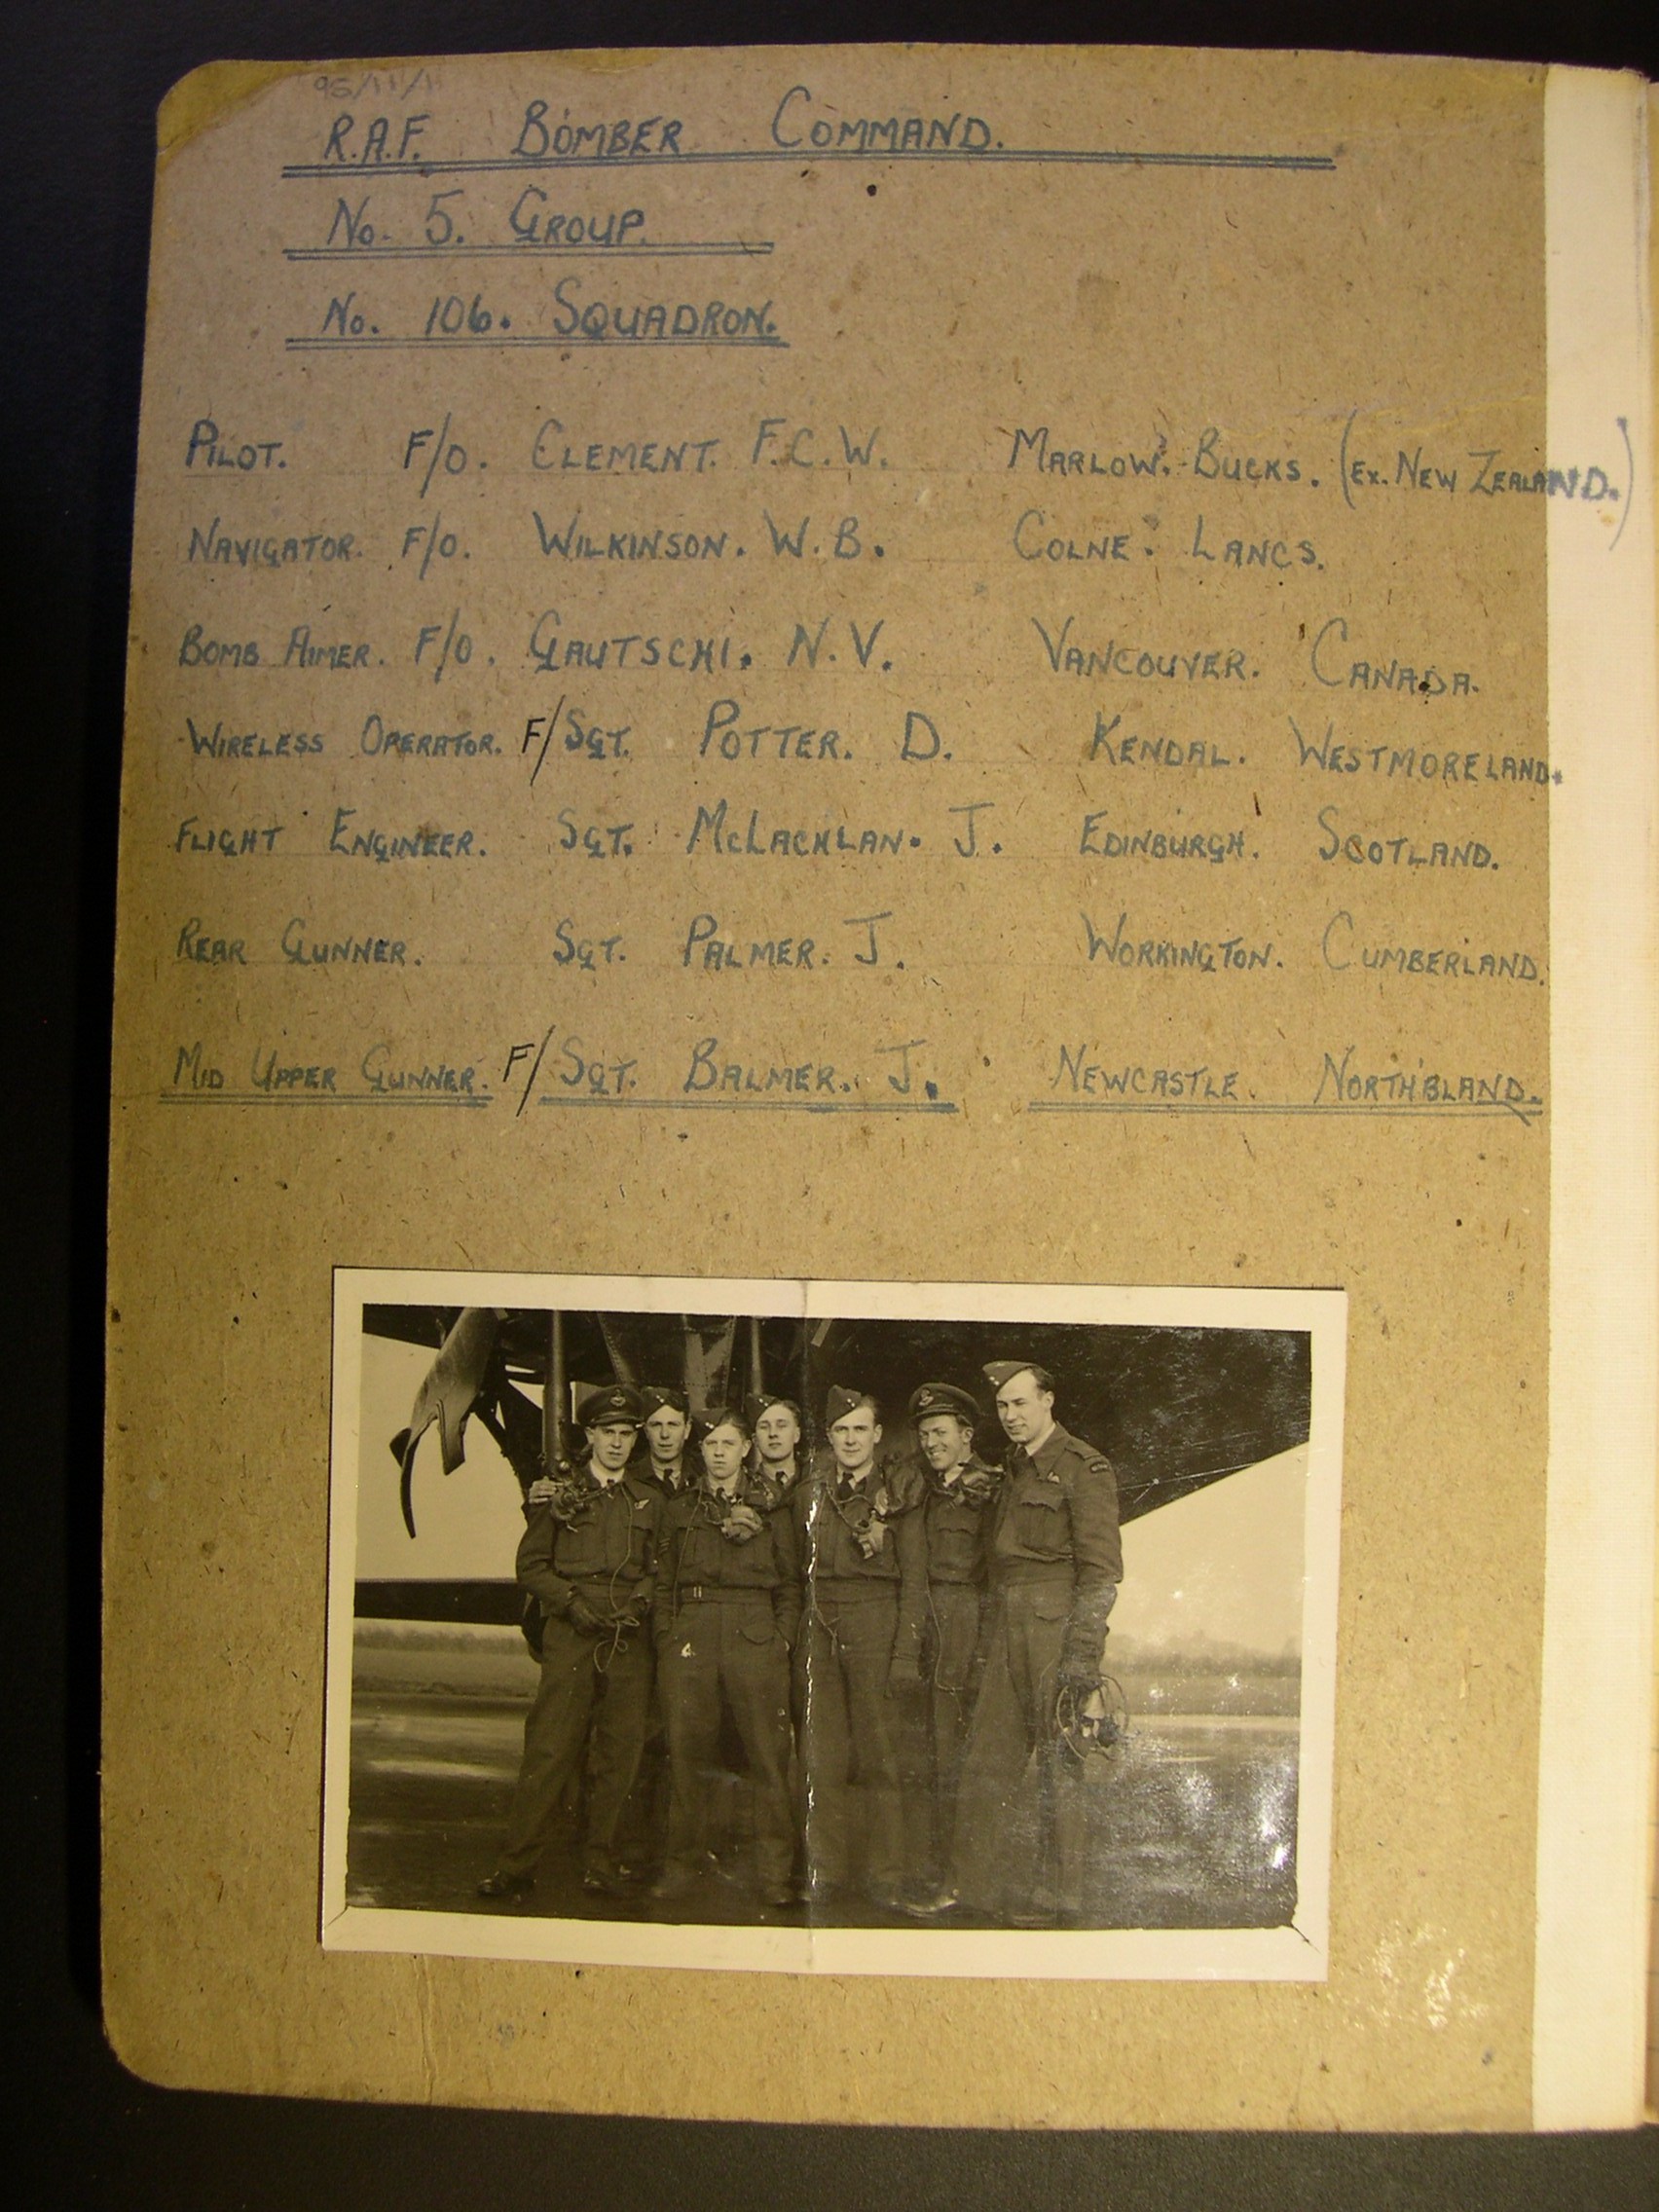 R.A.F. BOMBER COMMAND.
No. 5. GROUP.
No. 106. SQUADRON.
PILOT. F/O. CLEMENT. F.C.W. MARLOW. BUCKS. (EX. NEW ZEALAND.)
NAVIGATOR. F/O. WILKINSON. W.B. COLNE. LANCS.
BOMB AIMER. F/O. GAUTSCHI. N.V. VANCOUVER. CANADA.
WIRELESS OPERATOR. F/SGT. POTTER. D. KENDAL. WESTMORELAND.
FLIGHT ENGINEER. SGT. McLACHLAN. J. EDINBURGH. SCOTLAND.
REAR GUNNER. SGT. PALMER. J. WORKINGTON. CUMBERLAND.
MID UPPER GUNNER. F/SGT. BALMER. J. NEWCASTLE. NORTH'BLAND.